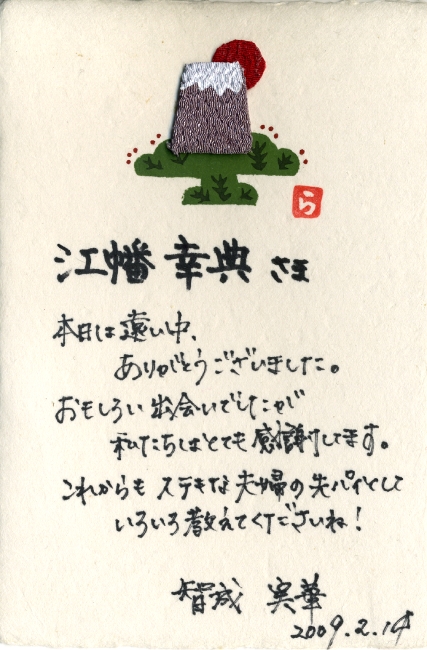 ら
江幡 幸典 さま
本日は遠い中、
ありがとうございました。
おもしろい出会いでしたが
私たちはとても感謝してます。
これからも ステキな夫婦の先パイとして
いろいろ教えてくださいね!
智成 実華
2009.2.14